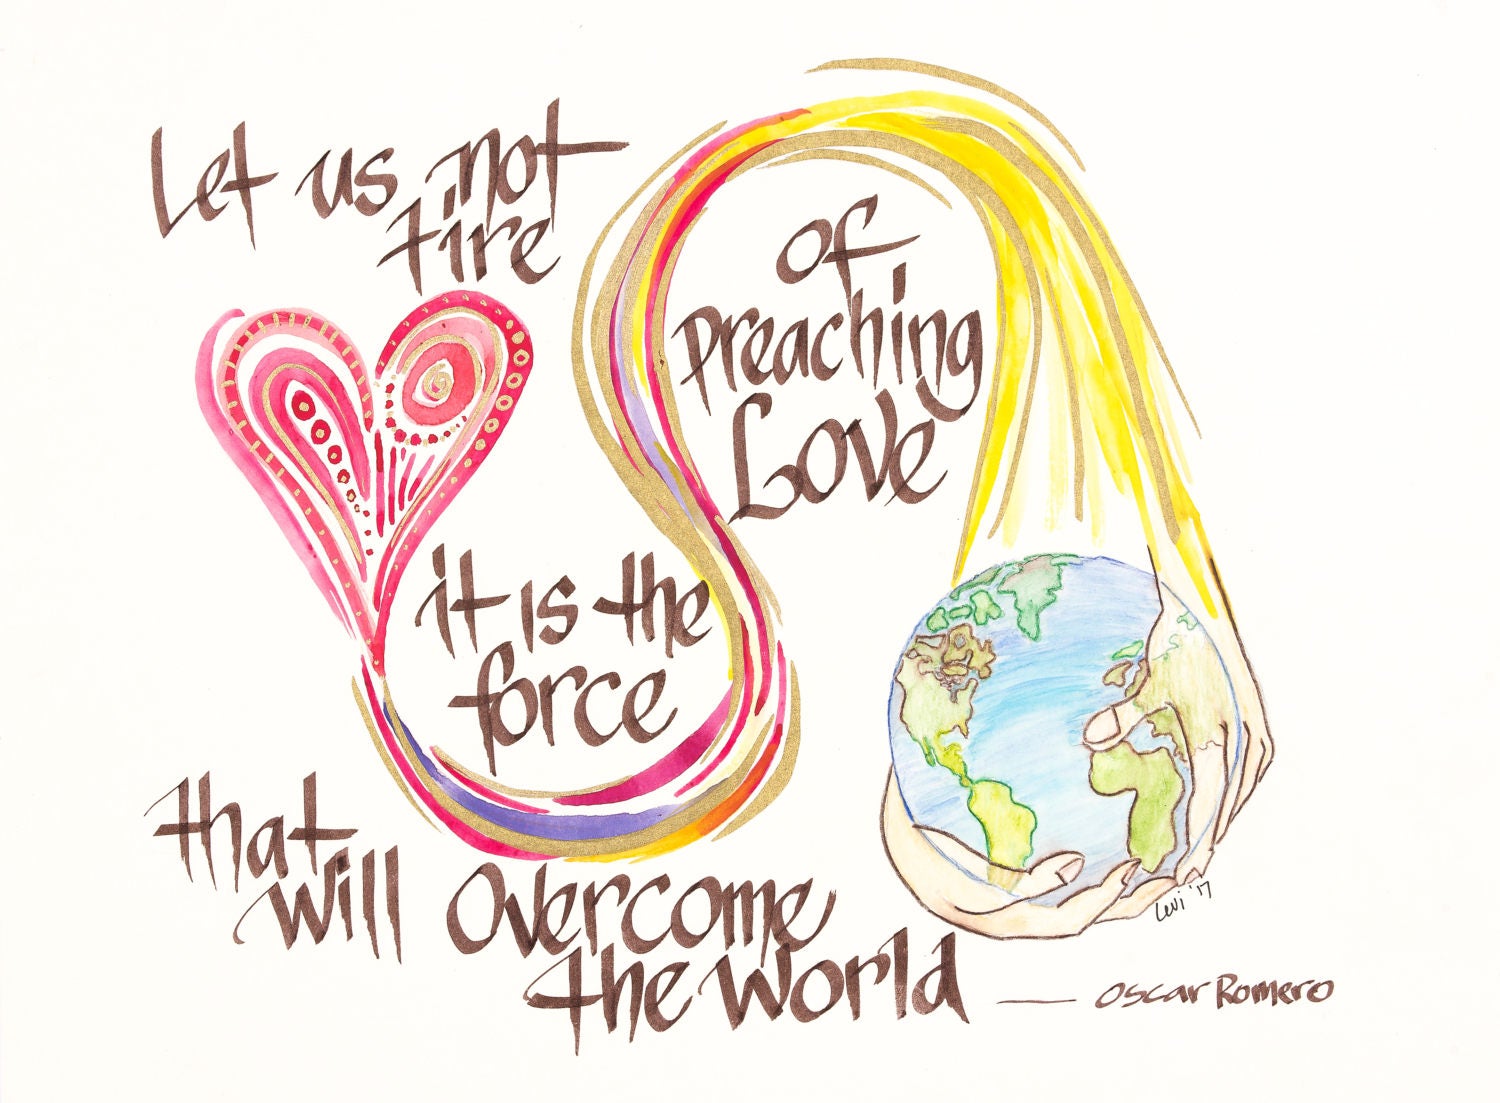 Let us not
tire
of
preaching
Love
it is the
force
that
will Overcome
the World
— Oscar Romero
Levi '17